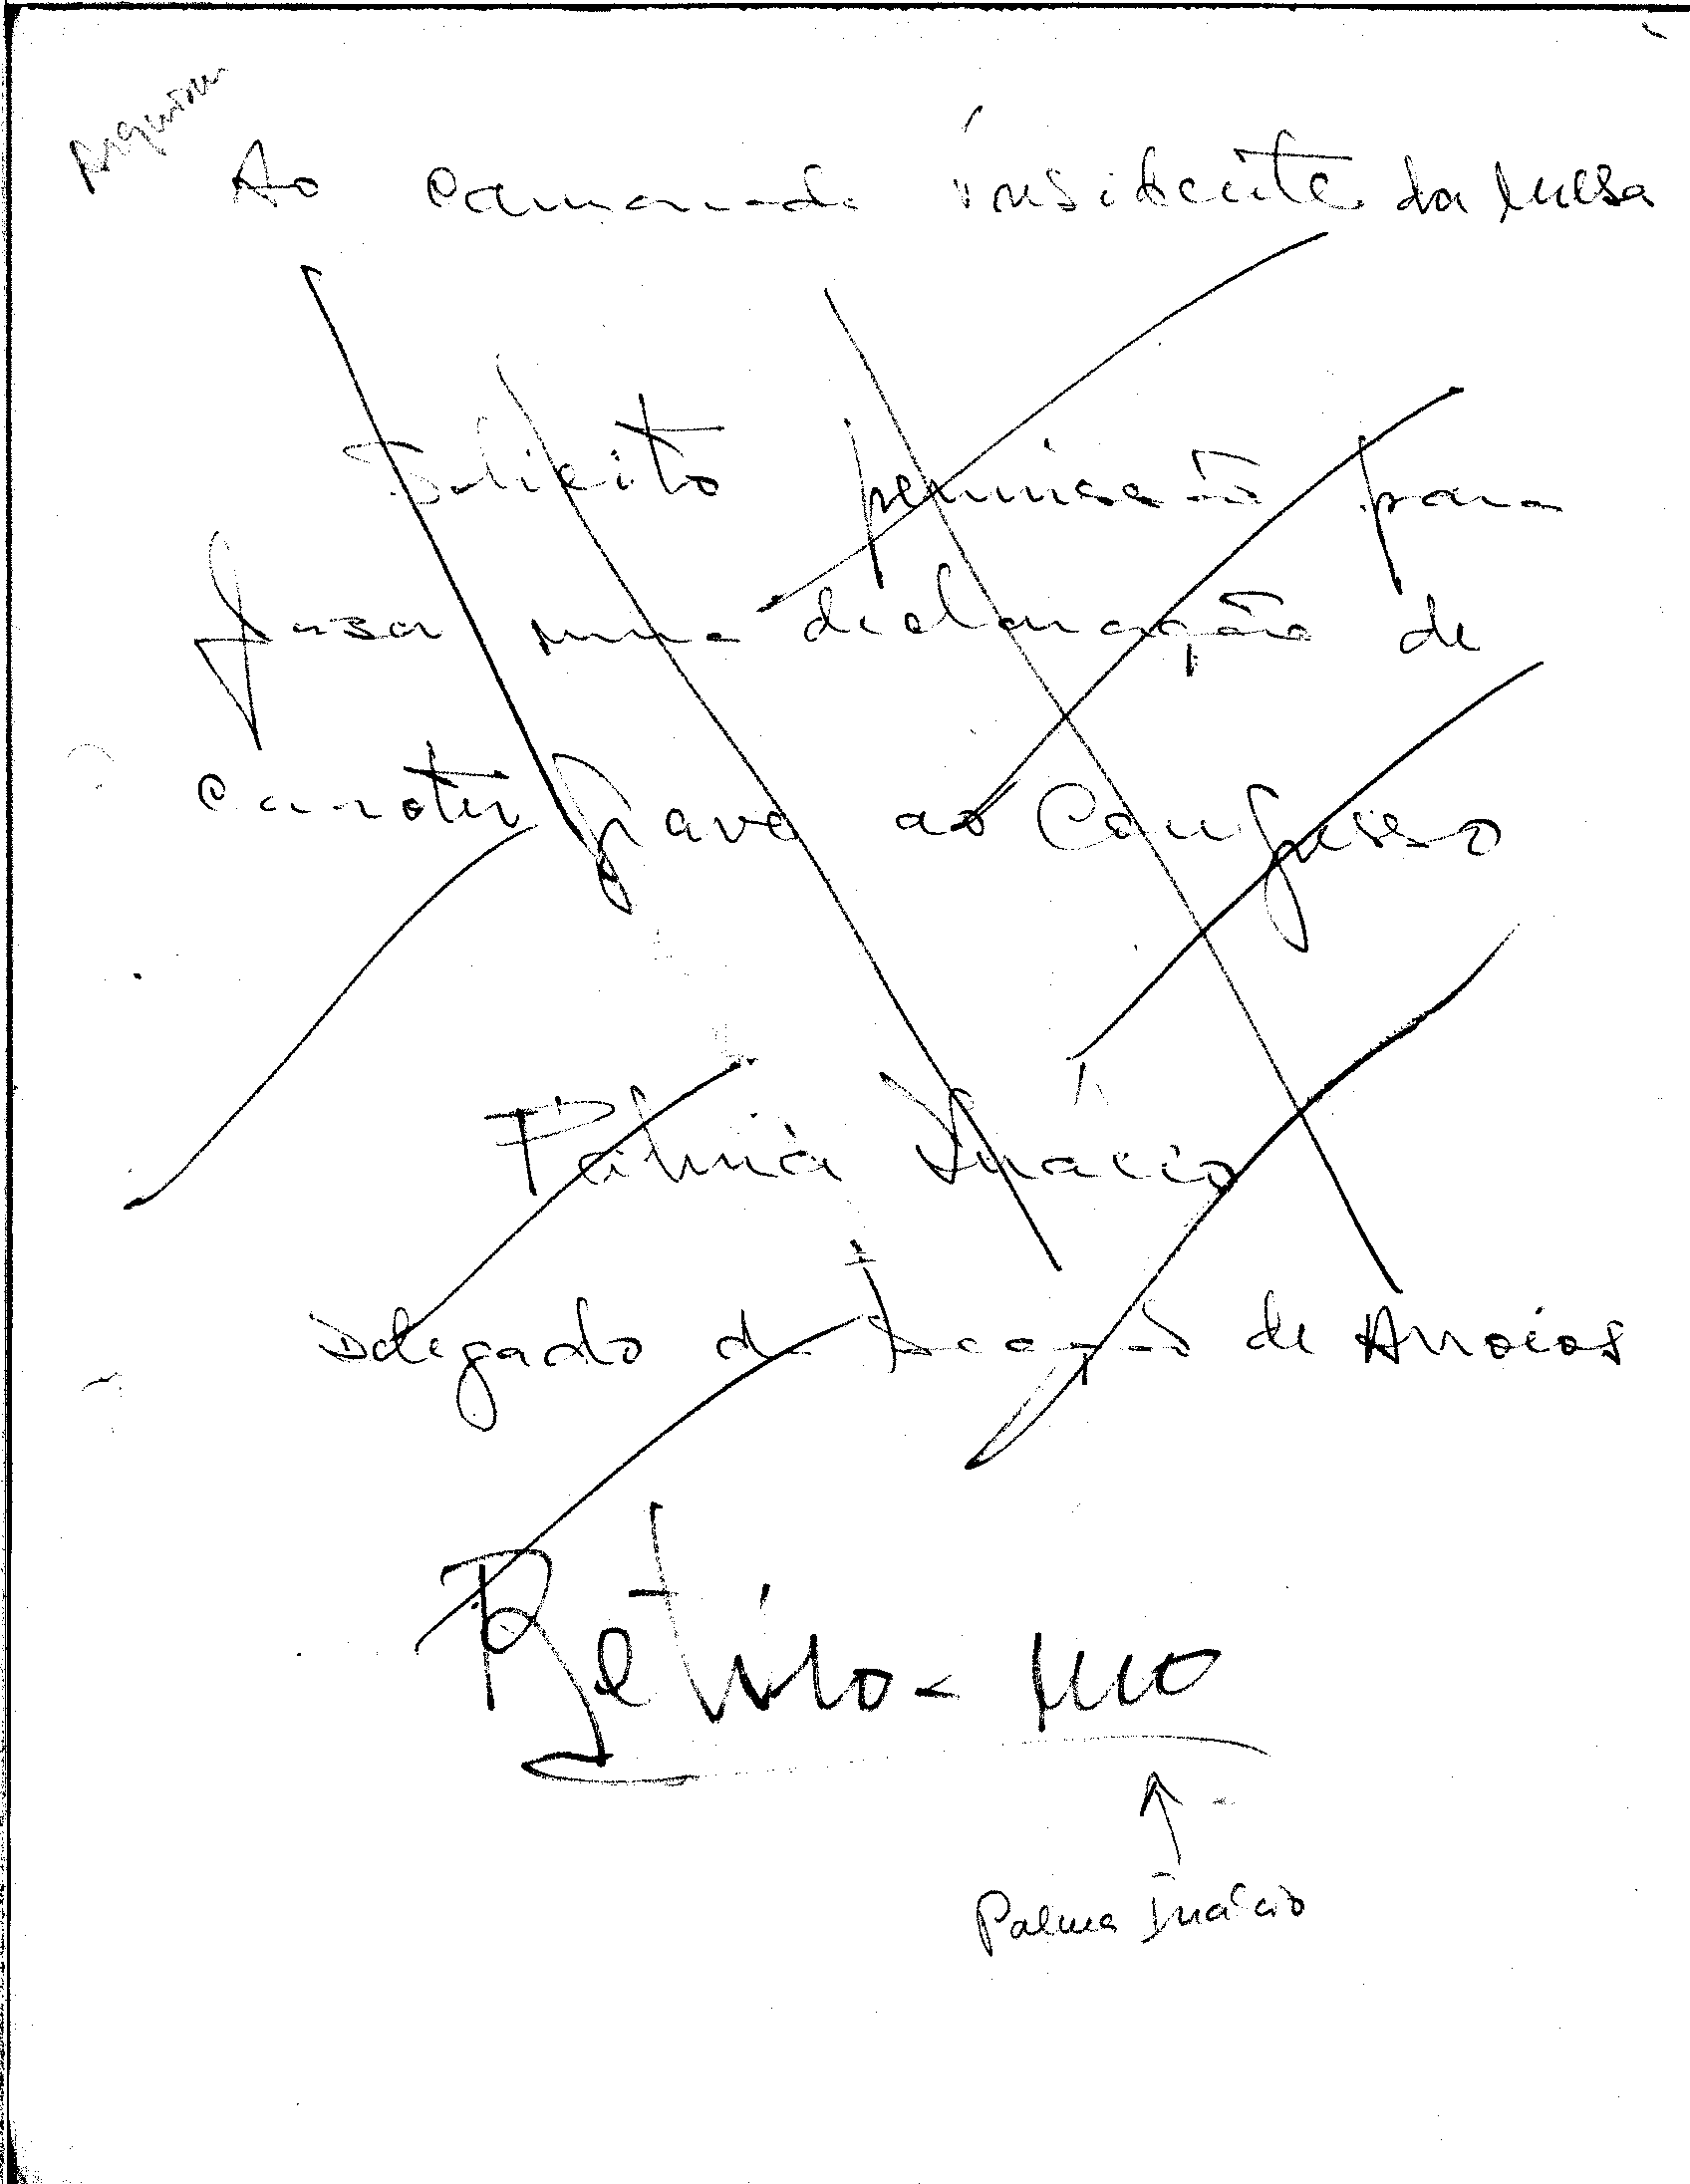 Arquivar
Ao camarada Presidente da Mesa
Solicito permissão para
fazer uma declaração de
caracter grave ao Congresso
Palma Inácio
Delegado da Secção de Arroios
Retiro-me
Palma Inácio